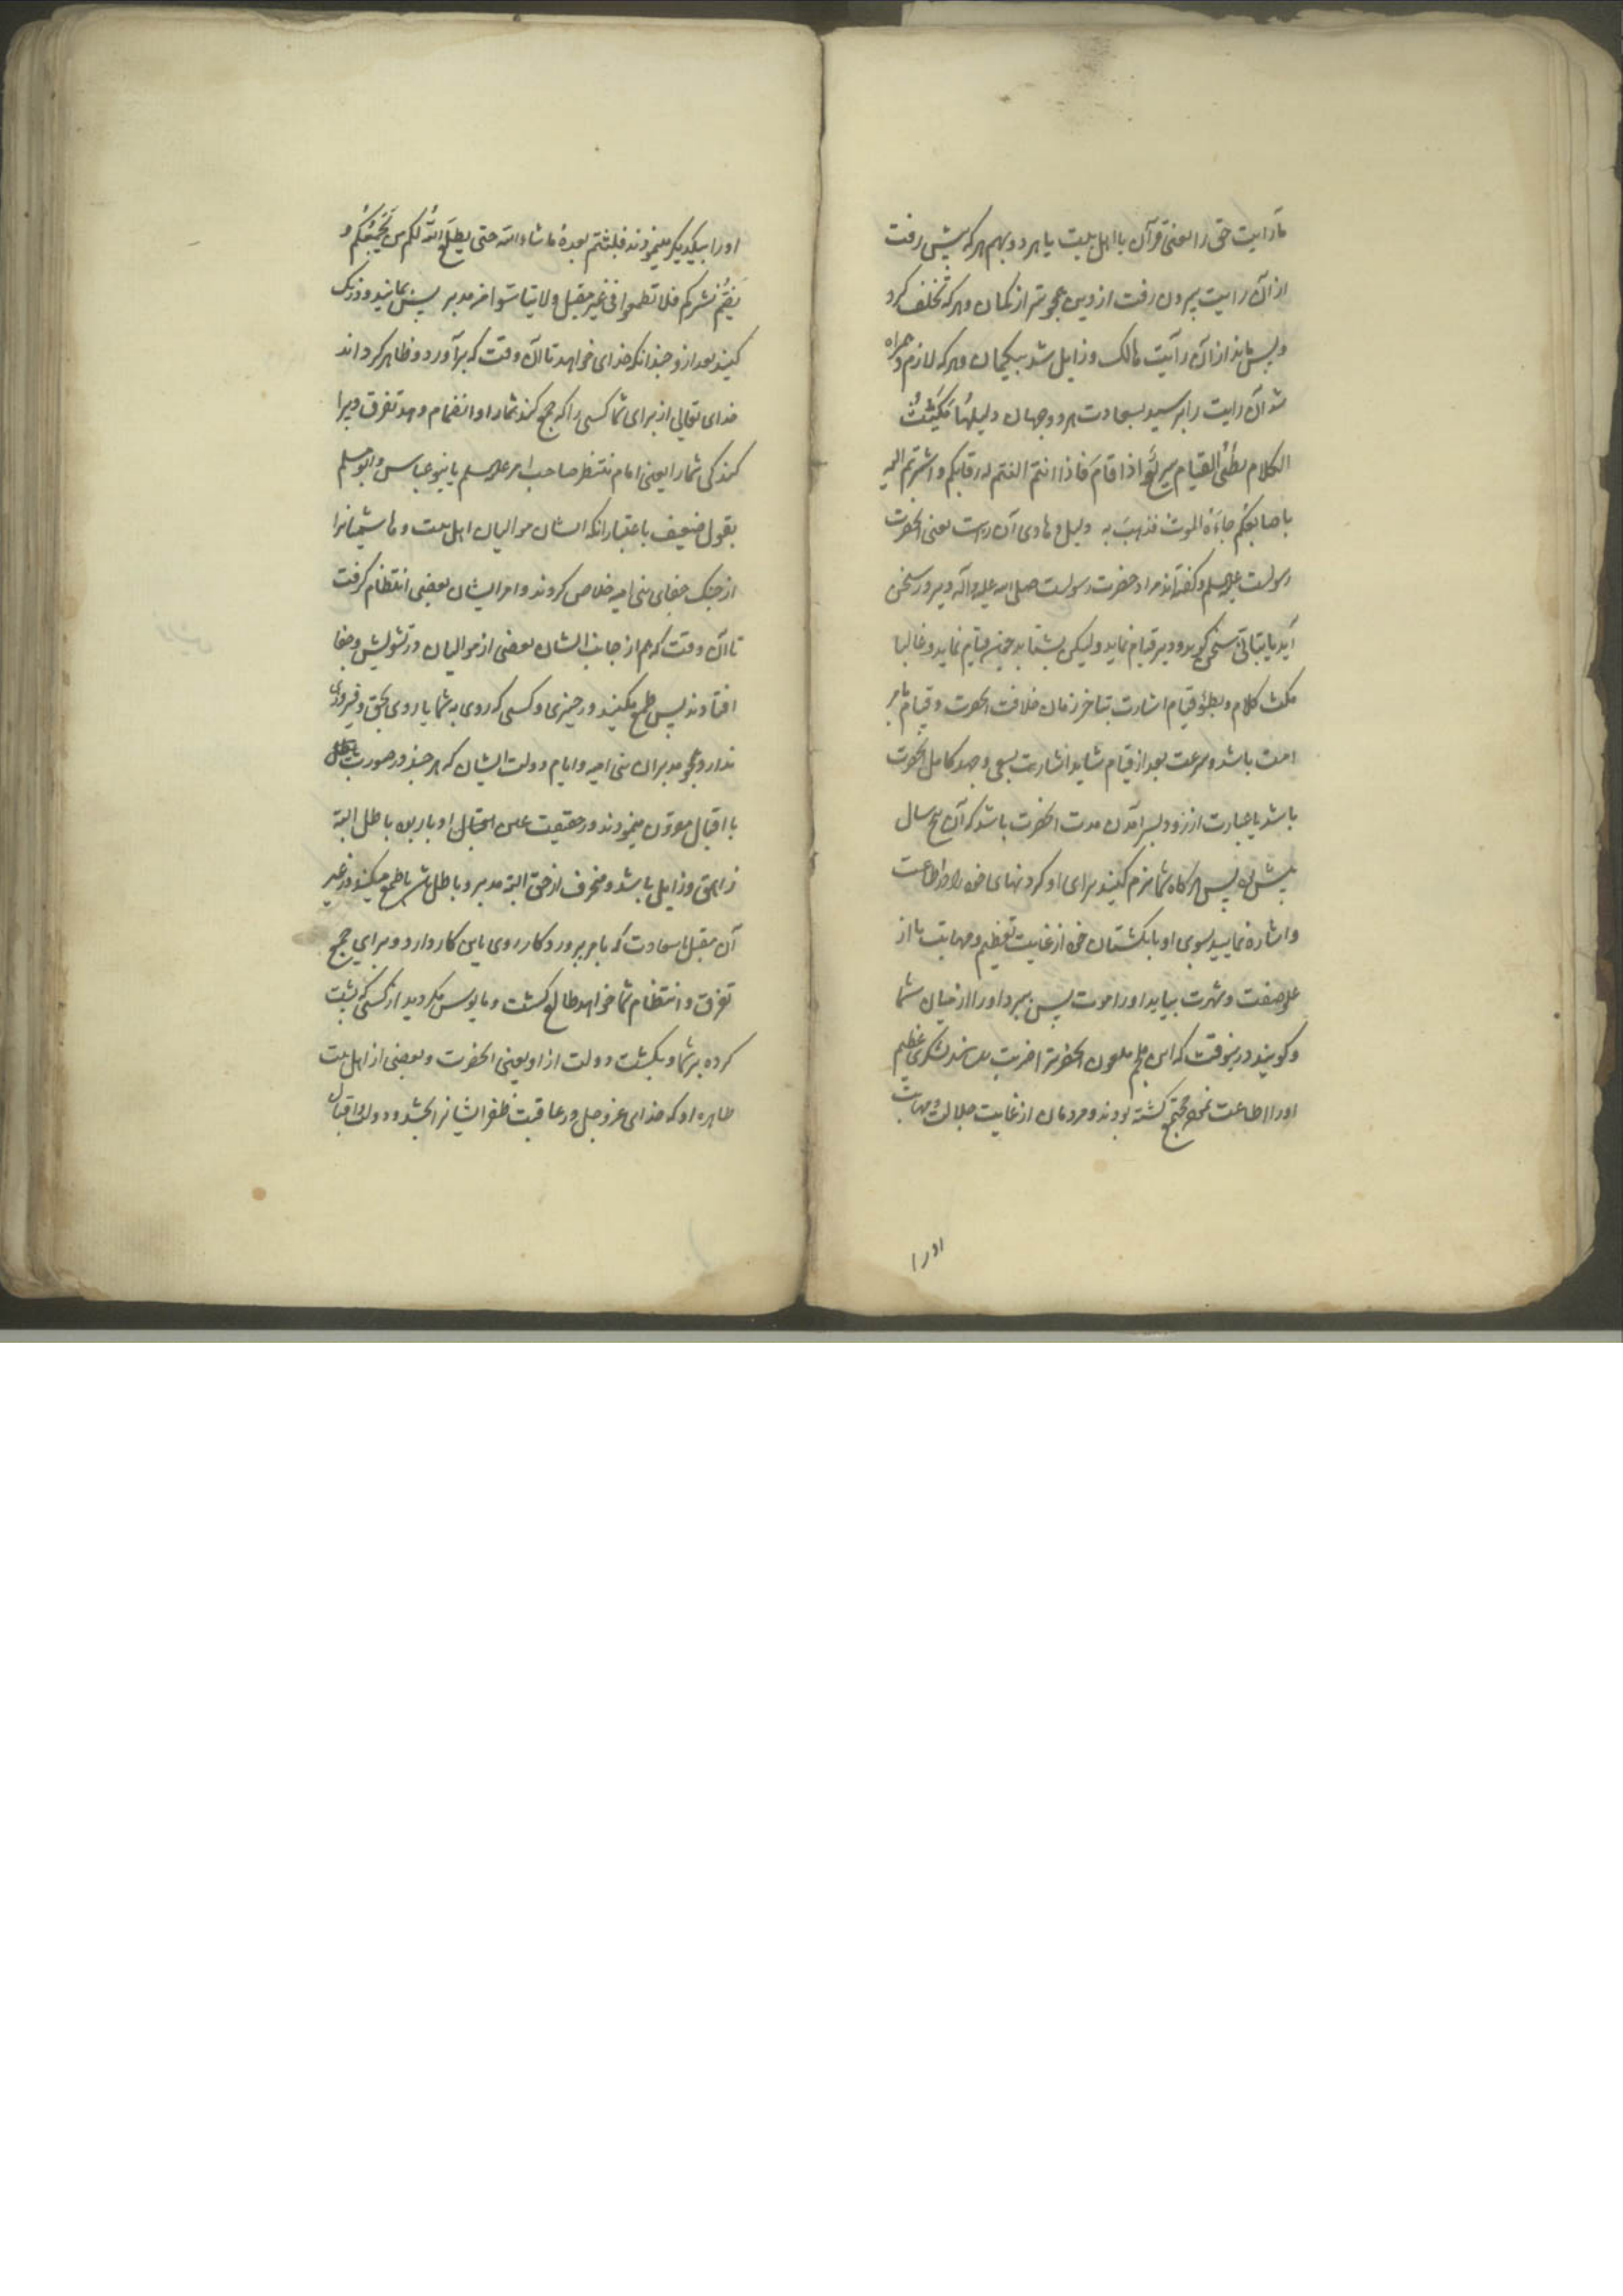 ما رایت حق را یعنی قرآن با اهل بیت یا هر دو بهم هر که پیش رفت
از آن رایت بیرون رفت از دین همچو تیر از کمان و هر که تخلف کرد
و پس ماند از آن رآیت هالک و زایل شد بیکمان و هر که لازم و همراه
شد آن رایت را برسید بسعادت هر دو جهان دلیلها مکیث
الکلام بطیُٔ القیام سریع اذا قام فاذا انتم النتم له رقابکم و اشرتم الیه
باصابعکم جاءَهُ الموت فذهب به دلیل و هادی آن رایت یعنی انحضرت
رسولست علیه السلم و کفته‌اند مراد حضرت رسولست صلی الله علیه و آله و دیر در سخن
آید یا بتانی سخن کوید و دیر قیام نماید ولیکن بشتابد چون قیام نماید و غالبا
مکث کلام و بطؤ قیام اشارت بتاخر زمان خلافت انحضرت و قیام بامر
امت باشد و سرعت بعد از قیام شاید اشارت بسعی و جهد کامل انحضرت
باشد یا عبارت از زود بسر آمدن مدت انحضرت باشد که آن پنج سال
بیش نبود پس هرکاه شما نرم کنید برای او کردنهای خود را و اطاعت
و اشاره نمایید بسوی او بانکشتان خود از غایت تعظیم و مهابت یا از
علو صفت و شهرت بیاید او را موت پس ببرد او را از میان شما
و کویند در بنوقت که ابن ملجم ملعون انحضرترا ضربت رسانید لشکری عظیم
او را اطاعت نموده مجتمع کشته بودند و مردمان از غایت جلالت و مهابت
او را
او را بیکدیکر مینمودند فلبثتم بعده ما شاء الله حتی یطلع الله لکم من یجمعکم و
یضم نشرکم فلا تطمعوا فی غیر مقبل و لا تیاسوا من مدبر پس بمانید و درنک
کنید بعد از او چندانکه خدای خواهد تا آن وقت که برآورد و ظاهر کرداند
خدای تعالی از برای شما کسی را که جمع کند شما را و انضمام دهد تفرق و پرا
کندکی شما را یعنی امام منتظر صاحب امر علیه السلم یا بنو عباس و ابو مسلم
بقول ضعیف باعتبار انکه ایشان موالیان اهل بیت و ما شیعیانرا
از چنک جفای بنی امیه خلاص کردند و امر ایشان بعضی انتظام کرفت
تا آن وقت که هم از جانب ایشان بعضی از موالیان در تشویش و جفا
افتادند پس طمع مکنید در چیزی و کسی که روی به شما یا روی بحق و فیروزی
ندارد همچو مدبران بنی امیه و ایام دولت ایشان که هر چند در صورت باطل
با اقبال مقرون مینمودند در حقیقت عین اقبال ادبار بود باطل البته
زاهق و زایل باشد و منحرف از حق البته مدبر و باطل باشد یا طمع مکنید در غیر
آن مقبل با سعادت که بامر پروردکار روی باین کار دارد و برای جمع
تفرق و انتظام شما خواهد طالع کشت و مایوس مکردید از کسی که پشت
کرده بر شما و بکشت دولت از او یعنی انحضرت و بعضی از اهل بیت
طاهره او که خدای عز و جل در عاقبت ظفر ایشانرا بخشد و دولت و اقبال